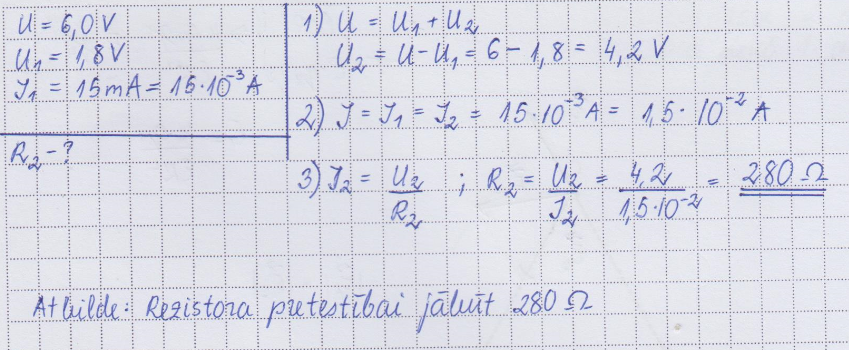 U = 6,0 V
U₁ = 1,8 V
I₁ = 15 mA = 15·10⁻³ A
R₂ - ?
1) U = U₁ + U₂
U₂ = U - U₁ = 6 - 1,8 = 4,2 V
2) I = I₁ = I₂ = 15·10⁻³ A = 1,5·10⁻² A
3) I₂ = U₂/R₂ ; R₂ = U₂/I₂ = 4,2/1,5·10⁻² = 280 Ω
Atbilde: Rezistora pretestībai jābūt 280 Ω